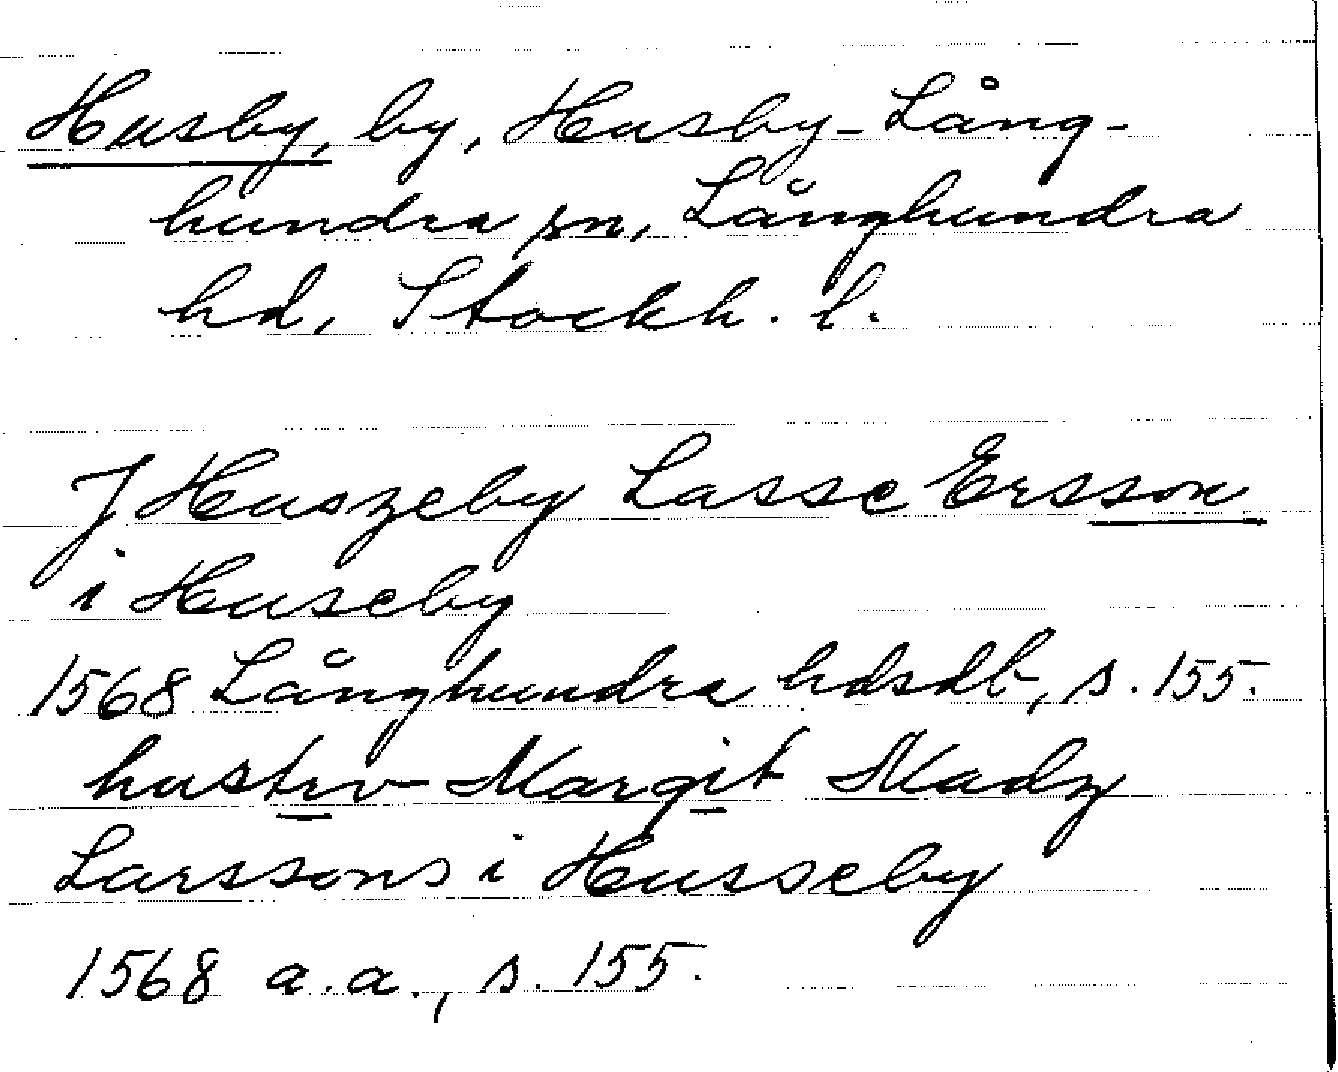 Husby, by, Husby-Lång-
hundra sn, Långhundra
hd, Stockh. l.
J Huszeby Lasse Ersson
i Huseby
1568 Långhundra hdsdb, s. 155.
hustrv Margit Madz
Larssons i Husseby
1568 a.a., s. 155.